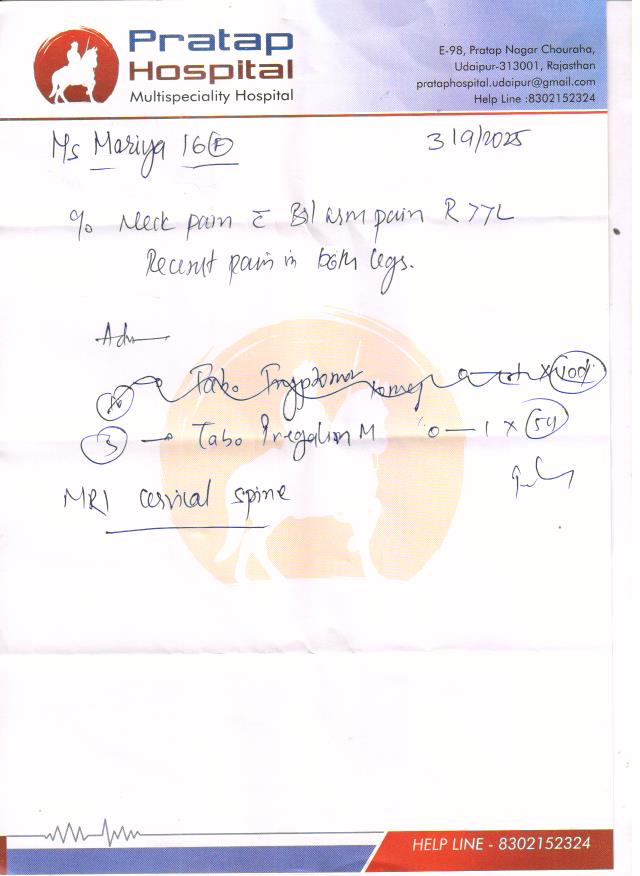 Pratap
Hospital
Multispeciality Hospital
E-98, Pratap Nagar Chouraha,
Udaipur-313001, Rajasthan
prataphospital.udaipur@gmail.com
Help Line :8302152324
M/s Mariya 16 F
3/9/2025
c/o Neck pain c̄ B/l arm pain R >> L
Recent pain in both legs.
Adv
Tabo
3 → Tabo Pregalin M 0 — 1 × 5d
MRI cervical spine
HELP LINE - 8302152324